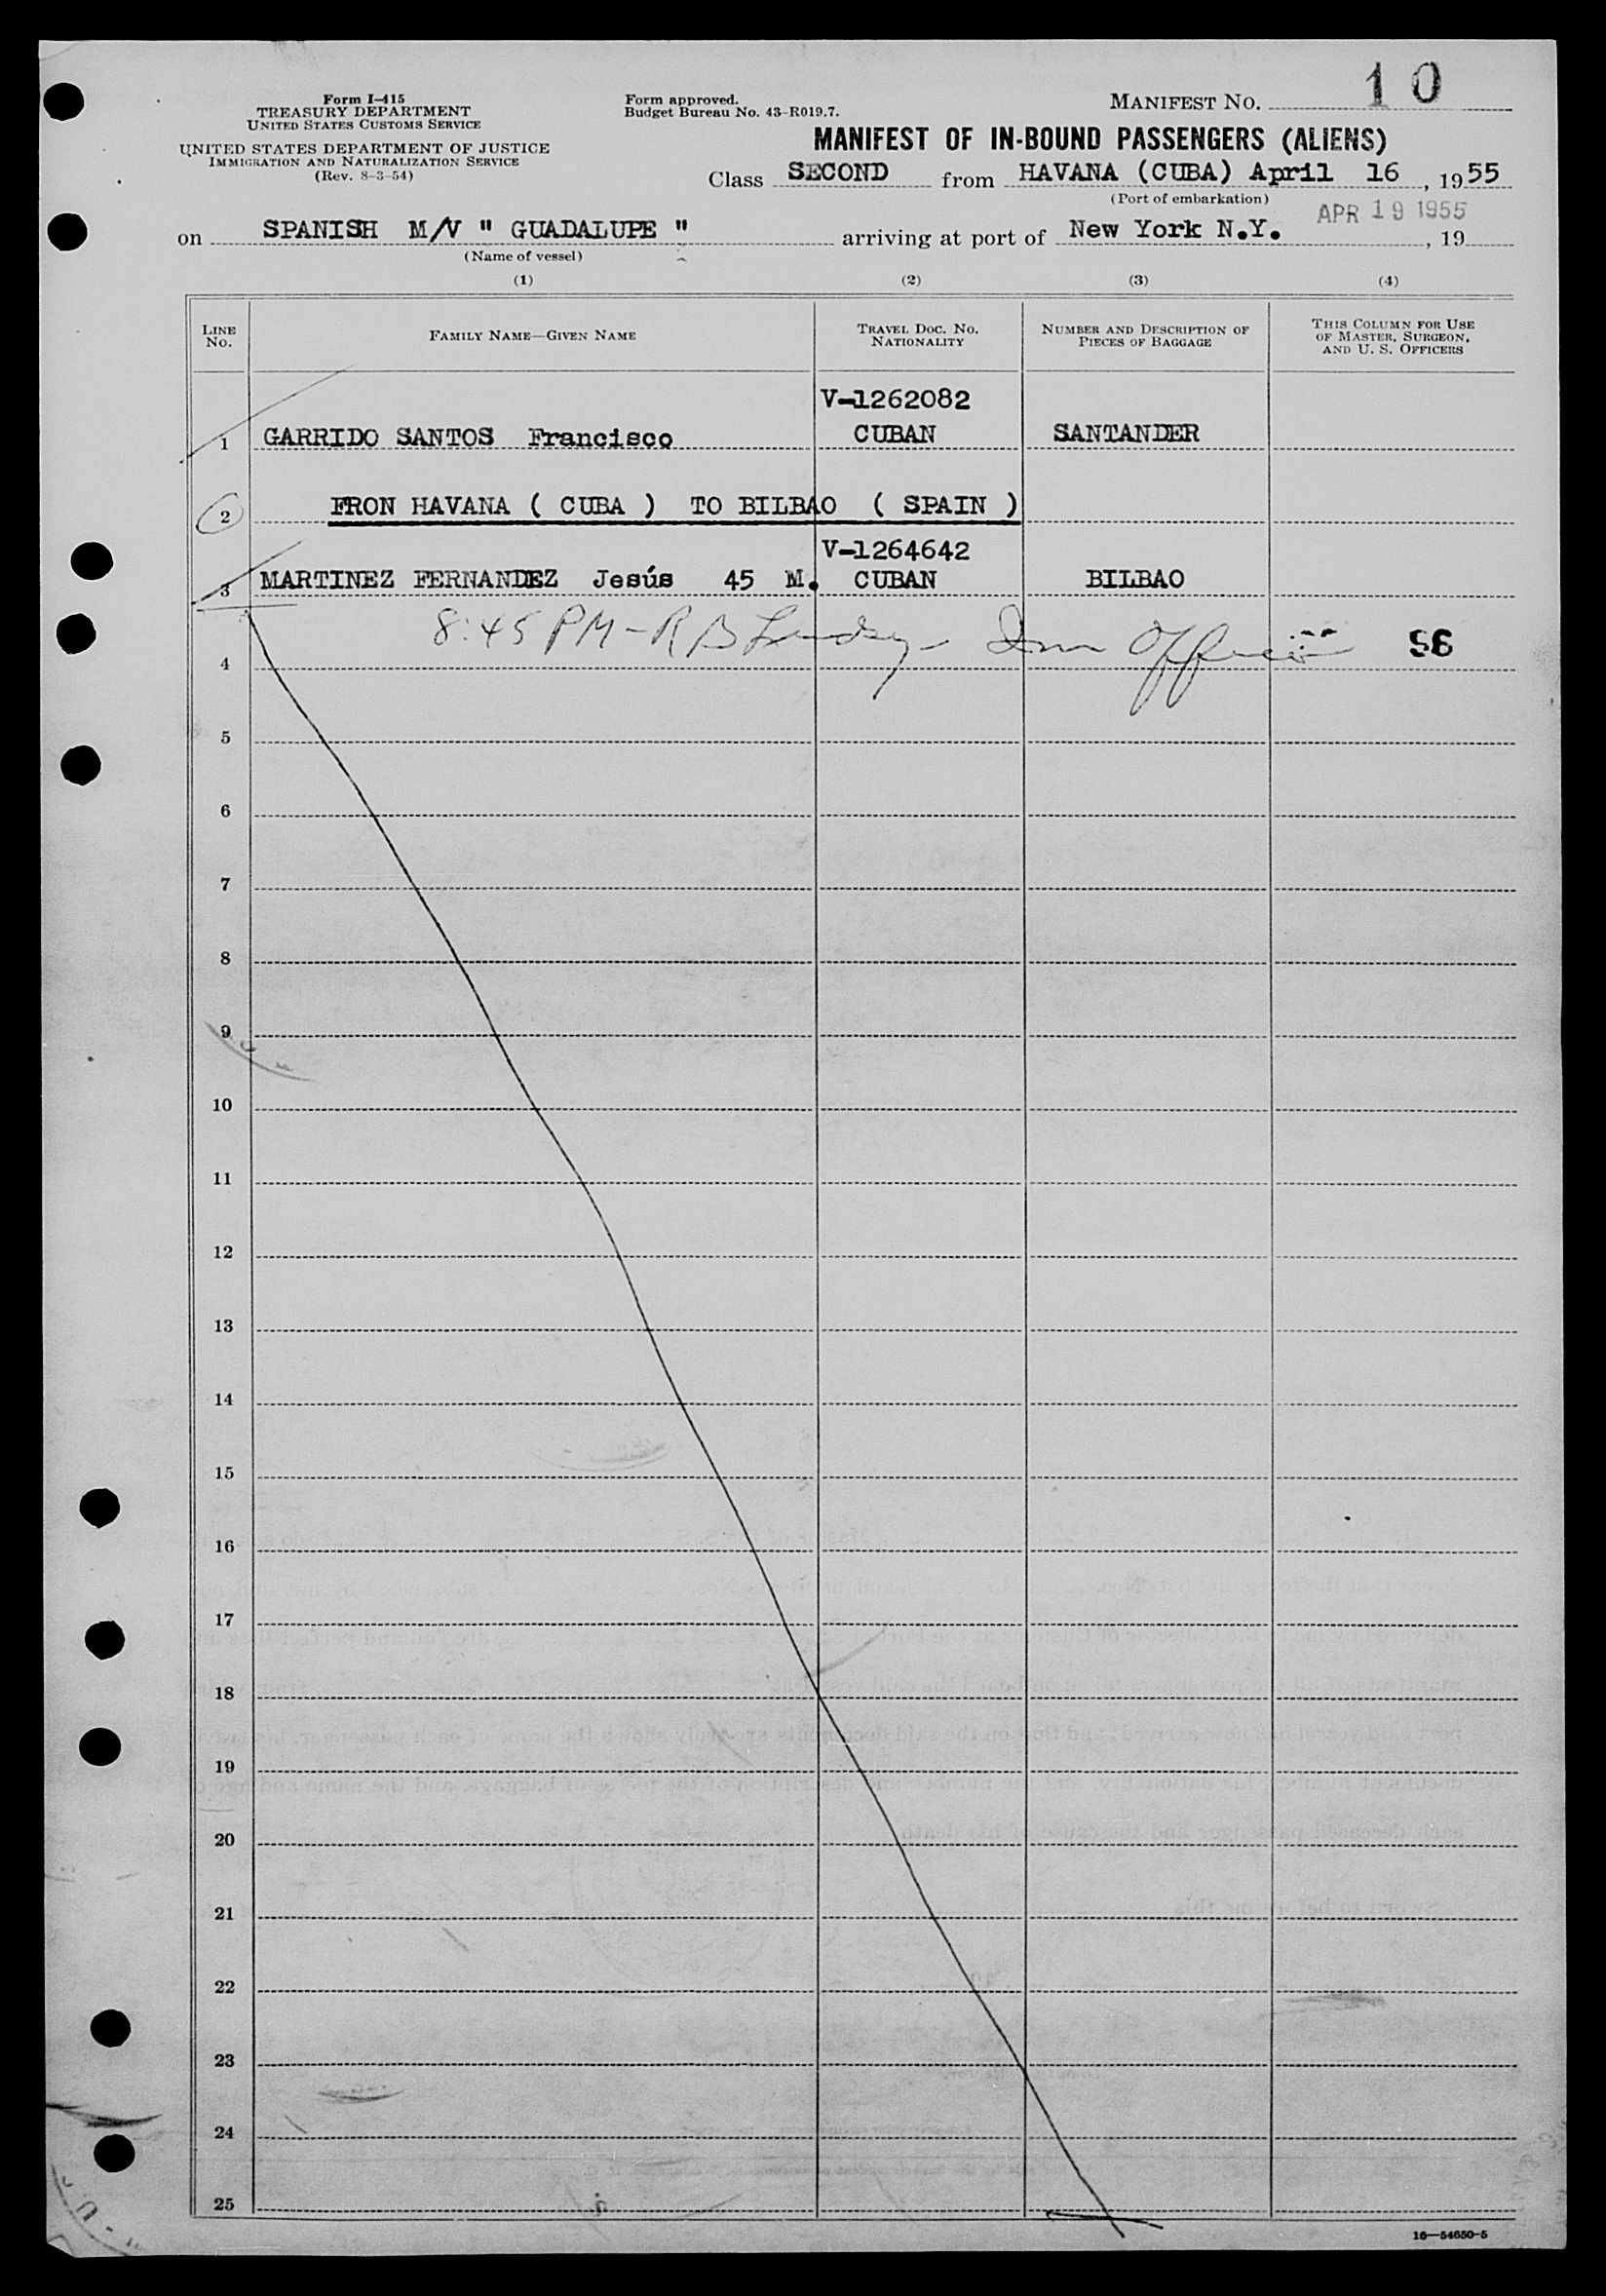 Form I-415
TREASURY DEPARTMENT
UNITED STATES CUSTOMS SERVICE
UNITED STATES DEPARTMENT OF JUSTICE
IMMIGRATION AND NATURALIZATION SERVICE
(Rev. 8-3-54)
Form approved.
Budget Bureau No. 43-R019.7.
MANIFEST NO. 10
MANIFEST OF IN-BOUND PASSENGERS (ALIENS)
Class SECOND from HAVANA (CUBA) April 16, 1955
(Port of embarkation)
APR 19 1955
on SPANISH M/V " GUADALUPE " arriving at port of New York N.Y. , 19
(Name of vessel)
(1) (2) (3) (4)
LINE NO. FAMILY NAME—GIVEN NAME TRAVEL DOC. NO. NATIONALITY NUMBER AND DESCRIPTION OF PIECES OF BAGGAGE THIS COLUMN FOR USE OF MASTER, SURGEON, AND U. S. OFFICERS
V-1262082
1 GARRIDO SANTOS Francisco CUBAN SANTANDER
2 FRON HAVANA ( CUBA ) TO BILBAO ( SPAIN )
V-1264642
3 MARTINEZ FERNANDEZ Jesús 45 M. CUBAN BILBAO
8:45 PM - R B Imm Officer 96
4
5
6
7
8
9
10
11
12
13
14
15
16
17
18
19
20
21
22
23
24
25
16—54650-5